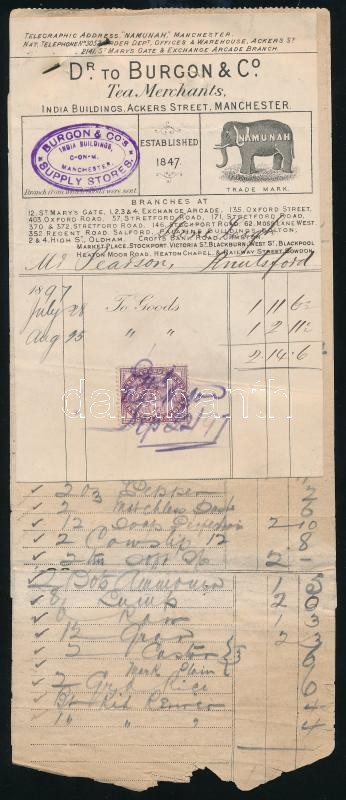 TELEGRAPHIC ADDRESS, "NAMUNAH," MANCHESTER.
NAT. TELEPHONE Nº 3053 ORDER DEPT, OFFICES & WAREHOUSE, ACKERS ST
2141, ST MARY'S GATE & EXCHANGE ARCADE BRANCH.
DR. TO BURGON & CO.
Tea Merchants,
INDIA BUILDINGS, ACKERS STREET, MANCHESTER.
BURGON & CO'S
INDIA BUILDINGS,
C-ON-M.
MANCHESTER.
SUPPLY STORES.
Branch from which Goods were sent.
ESTABLISHED
1847.
NAMUNAH
TRADE MARK.
BRANCHES AT
12, ST MARY'S GATE, 1,2,3 & 4, EXCHANGE ARCADE, 135, OXFORD STREET,
403, OXFORD ROAD, 57, STRETFORD ROAD, 171, STRETFORD ROAD,
370, & 372, STRETFORD ROAD, 146, STOCKPORT ROAD, 62, MOSS LANE WEST,
352, REGENT ROAD, SALFORD, PALATINE BUILDINGS, BOLTON,
2 & 4, HIGH ST, OLDHAM, CROFTS BANK ROAD, URMSTON,
MARKET PLACE, STOCKPORT, VICTORIA ST, BLACKBURN, WEST ST, BLACKPOOL
HEATON MOOR ROAD, HEATON CHAPEL, & RAILWAY STREET, BOWDON.
Mr Pearson, Knutsford
1897
July 28 To Goods 1 11 6½
Aug 25 " " 1 2 11½
2 14 6
Sep 22/97
darabanth
2 oz Pepper 2
2 Matchless 6
12 2 10
2 Cowslip 12 8
2 2 -
2 Bots Ammonia 1
8 Lump 2 0
6 Raw 1 3
12 Gran 2 3
2 Castor 6
2 Rice 6
4
1 " " 4